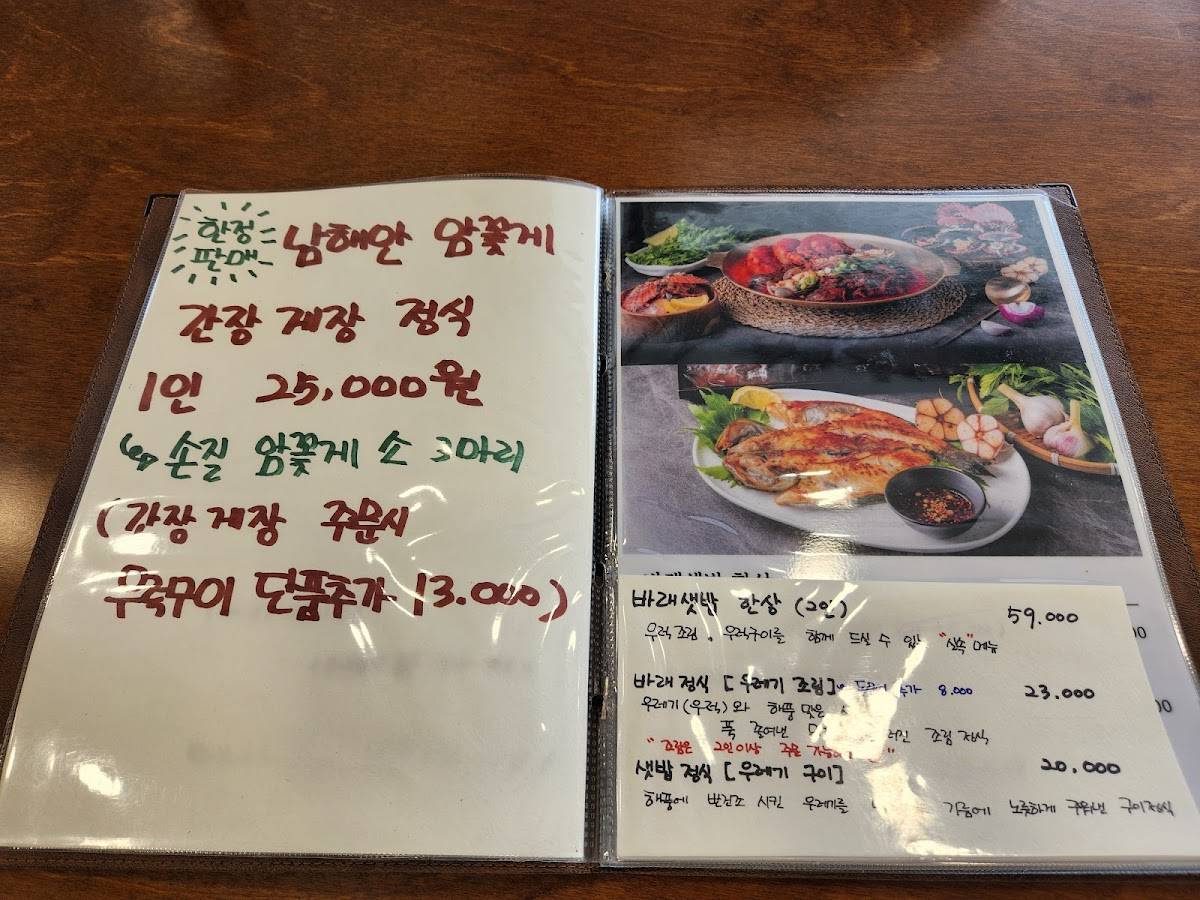 한정
판매
남해안 암꽃게
간장게장 정식
1인 25,000원
손질 암꽃게 소 3마리
(간장게장 주문시
우럭구이 단품추가 13.000)
바래샛밥 한상 (2인) 59.000
우럭조림, 우럭구이를 함께 드실 수 있는 "실속" 메뉴
바래정식 [우레기 조림] 추가 8.000 23.000
우레기(우럭)와 해풍 맞은
푹 졸여낸 조림정식
"조림은 2인이상 주문
샛밥 정식 [우레기 구이] 20,000
해풍에 반건조 시킨 우레기를 기름에 노릇하게 구워낸 구이정식